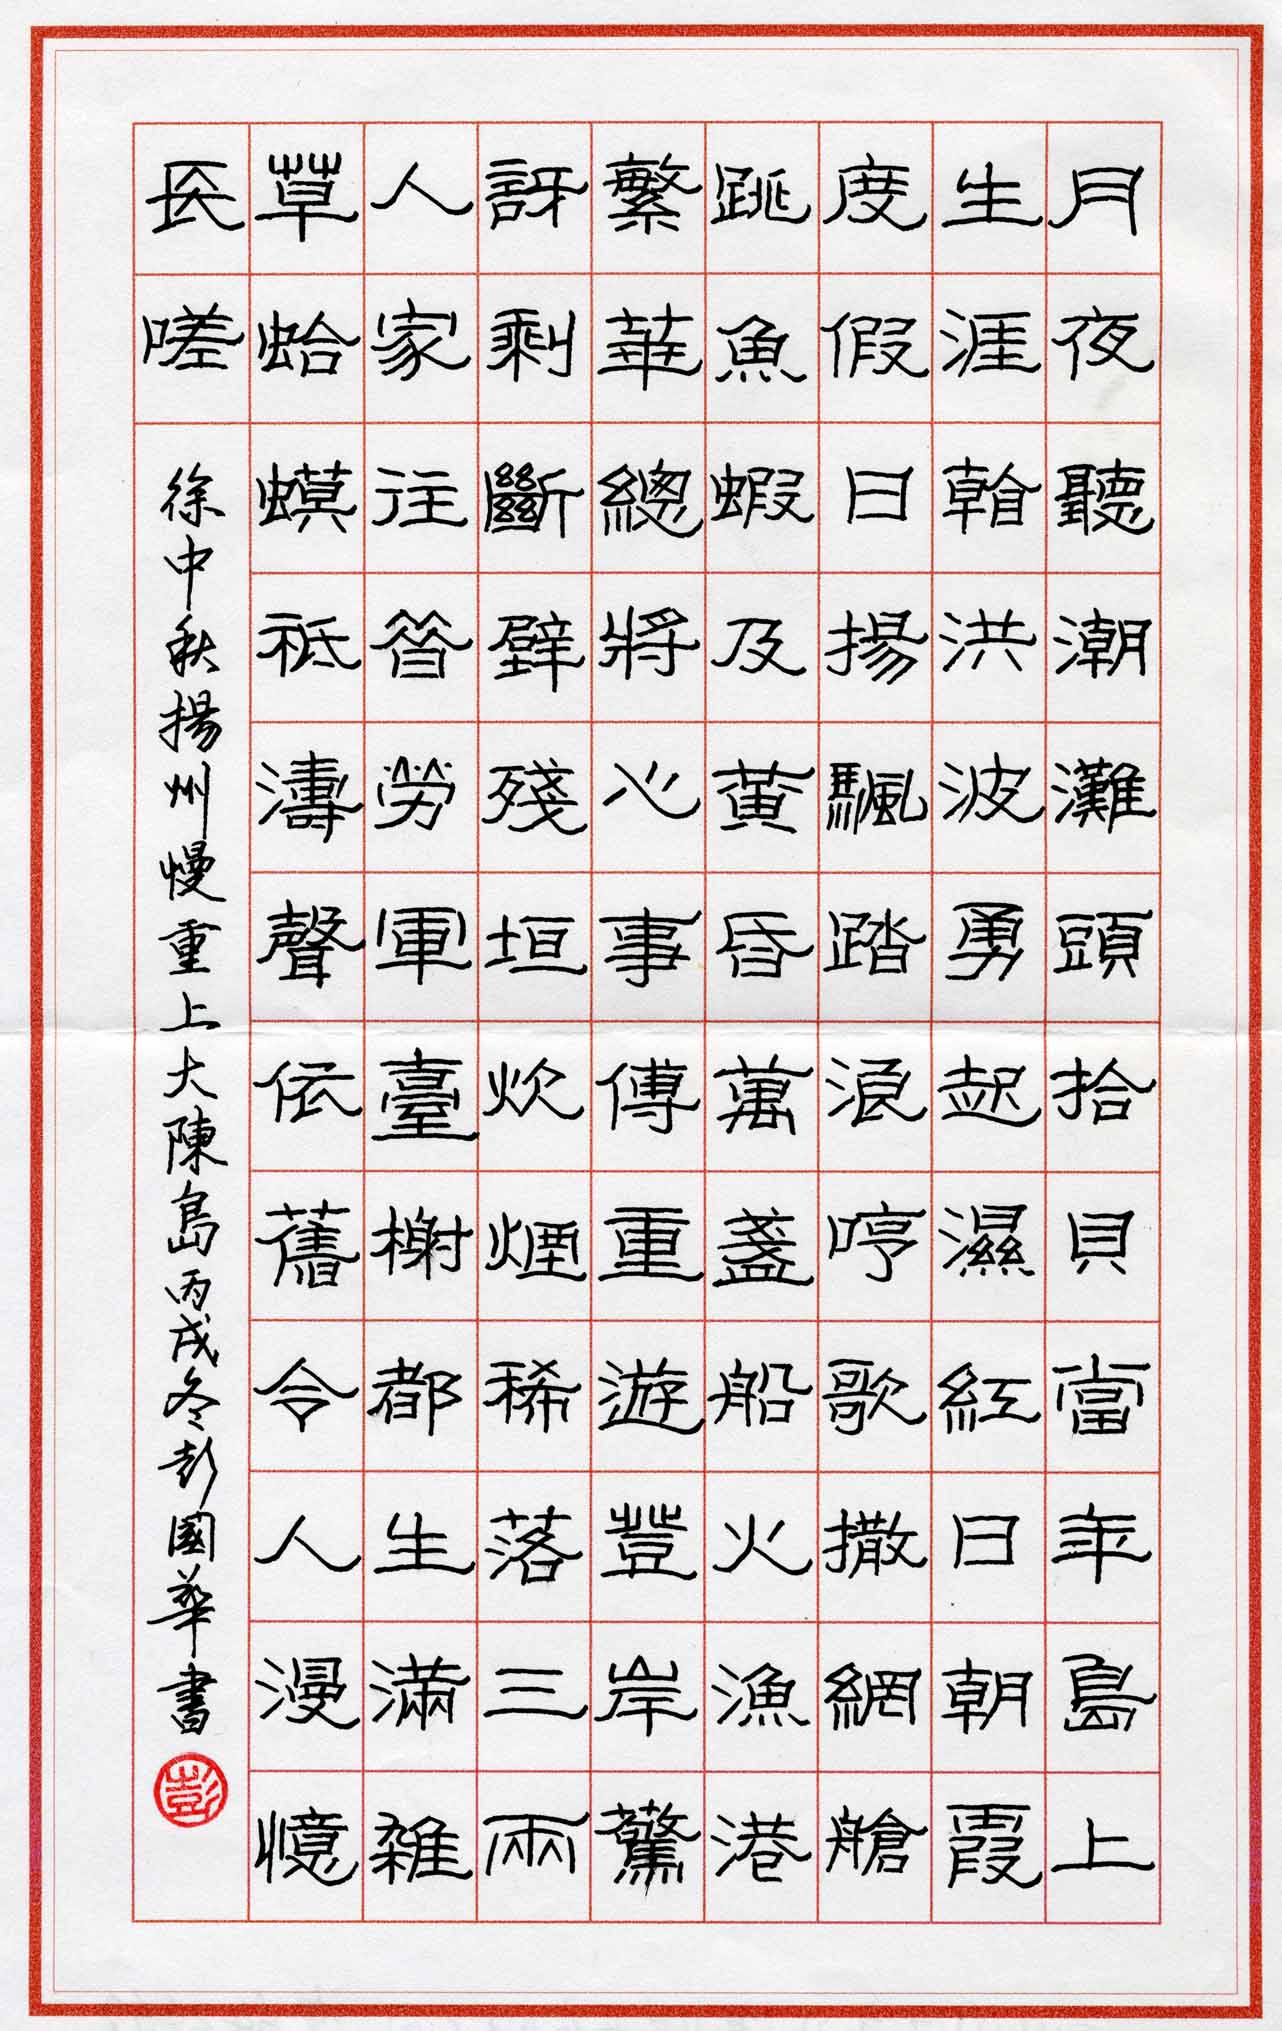 月夜聽潮灘頭拾貝當年島上
生涯看洪波勇起濕紅日朝霞
度假日揚颿踏浪哼歌撒網艙
跳魚蝦及黃昏萬盞船火漁港
繁華總將心事傅重遊登岸驚
訝剩斷壁殘垣炊煙稀落三兩
人家往昔勞軍臺榭都生滿雜
草蛤蟆祗濤聲依舊令人漫憶
長嗟
徐中秋揚州慢重上大陳島丙戌冬彭國華書
彭